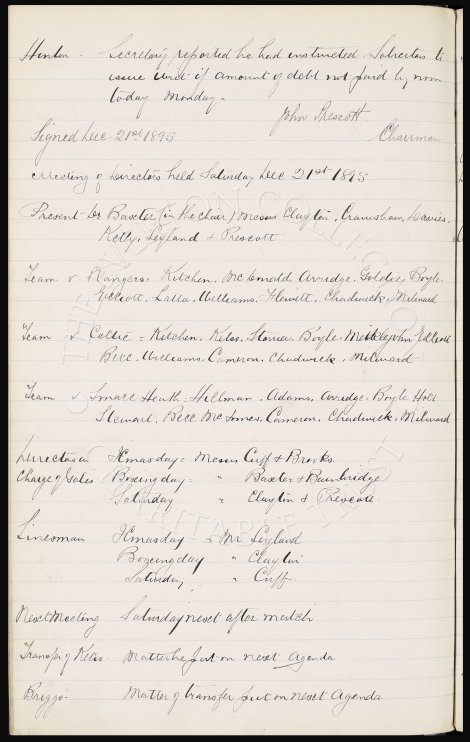 Hinton. Secretary reported he had instructed Solicitors to
issue Writ if amount of debt not paid by noon
today Monday.
John Prescott.
Signed Dec. 21st 1895 Chairman
Meeting of Directors held Saturday Dec 21st 1895
Present - Dr Baxter (in the chair) Messrs Clayton, Cranshaw, Davies,
Kelly, Leyland & Prescott
Team v Rangers: Kitchen, McDonald, Arridge, Goldie, Boyle,
Elliott, Latta, Williams, Flewitt, Chadwick, Milward
Team v Celtic = Kitchen, Kelso, Storrier, Boyle, Meiklejohn, Elliott
Bell, Williams, Cameron, Chadwick, Milward
Team v Small Heath: Hillman, Adams, Arridge, Boyle, Holt
Stewart, Bell, McInnes, Cameron, Chadwick, Milward
Directors in Xmasday = Messrs Cuff & Brooks
Charge of Gates Boxingday = " Baxter & Bainbridge
Saturday " Clayton & Prescott
Linesman Xmasday = Mr Leyland
Boxingday " Clayton
Saturday " Cuff
Next Meeting Saturday next after match
Transfer of Kelso. Matter be put on next Agenda
Briggs. Matter of transfer put on next Agenda
THE EVERTON COLLECTION
CHARITABLE TRUST